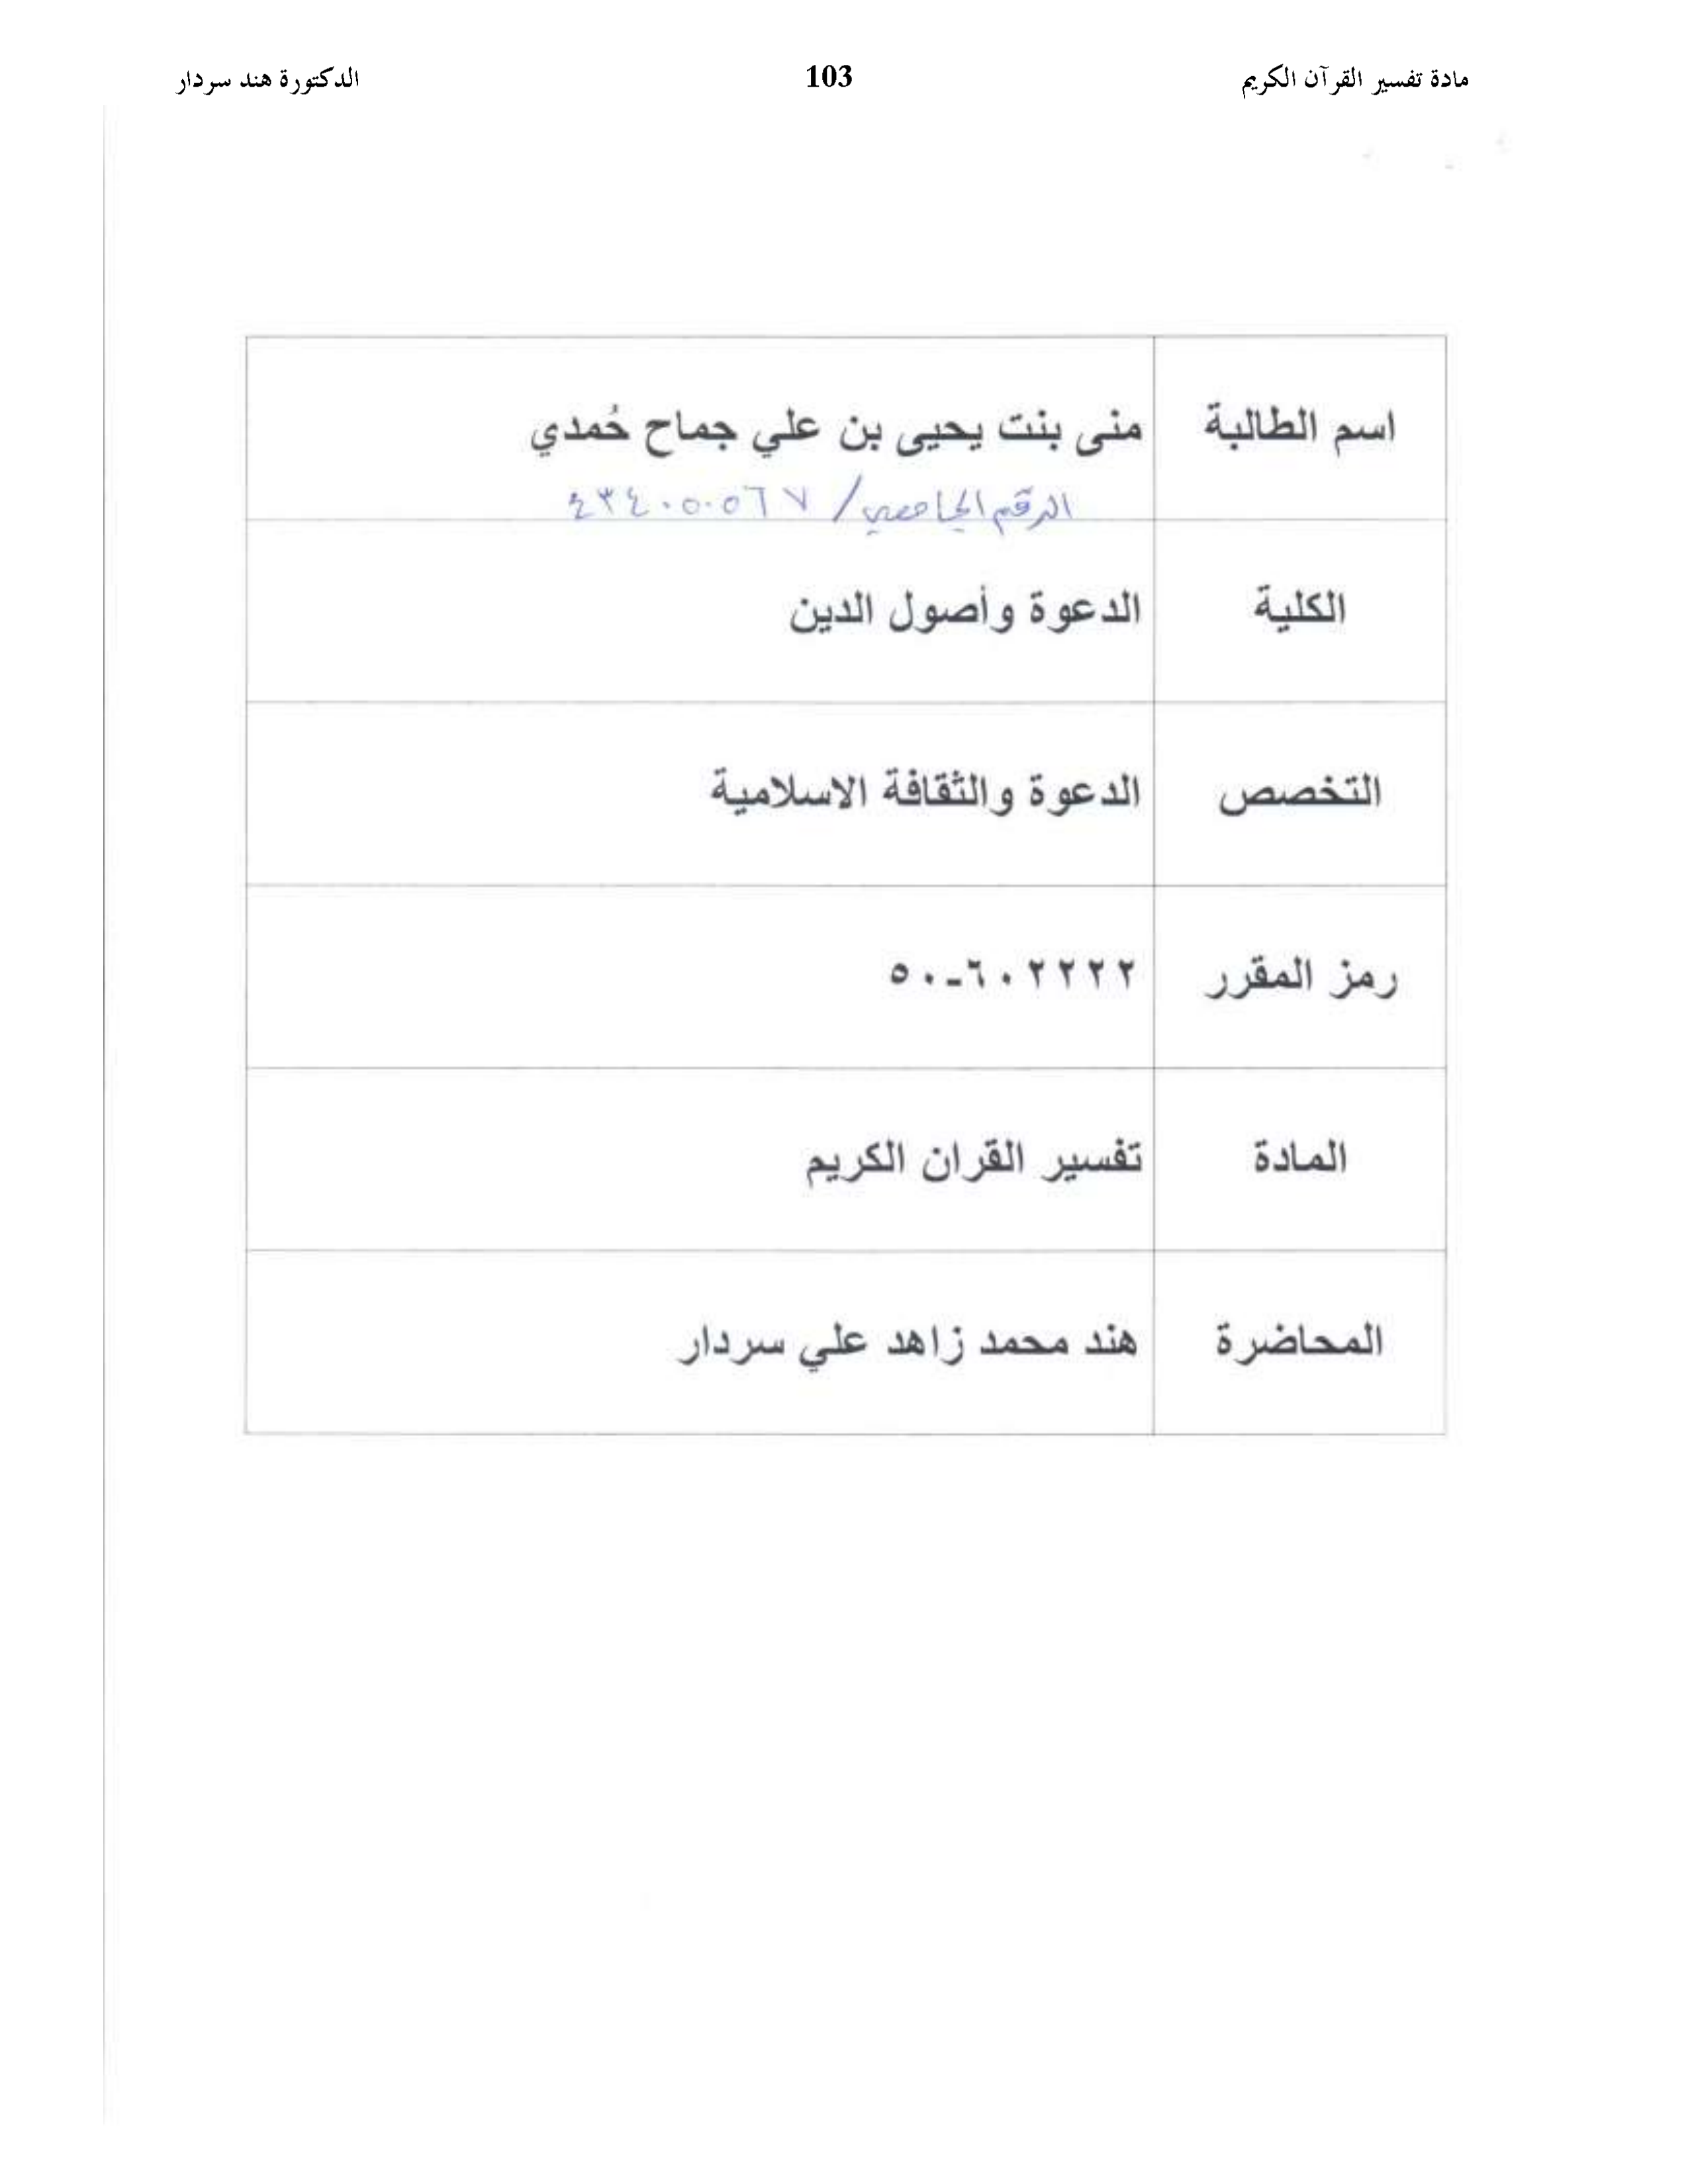 مادة تفسير القرآن الكريم 103 الدكتورة هند سردار
اسم الطالبة منى بنت يحيى بن علي جماح حُمدي
الرقم الجامعي/ ٤٣٤٠٥٠٥٦٧
الكلية الدعوة وأصول الدين
التخصص الدعوة والثقافة الاسلامية
رمز المقرر ٥٠-٦٠٢٢٢٢
المادة تفسير القران الكريم
المحاضرة هند محمد زاهد علي سردار